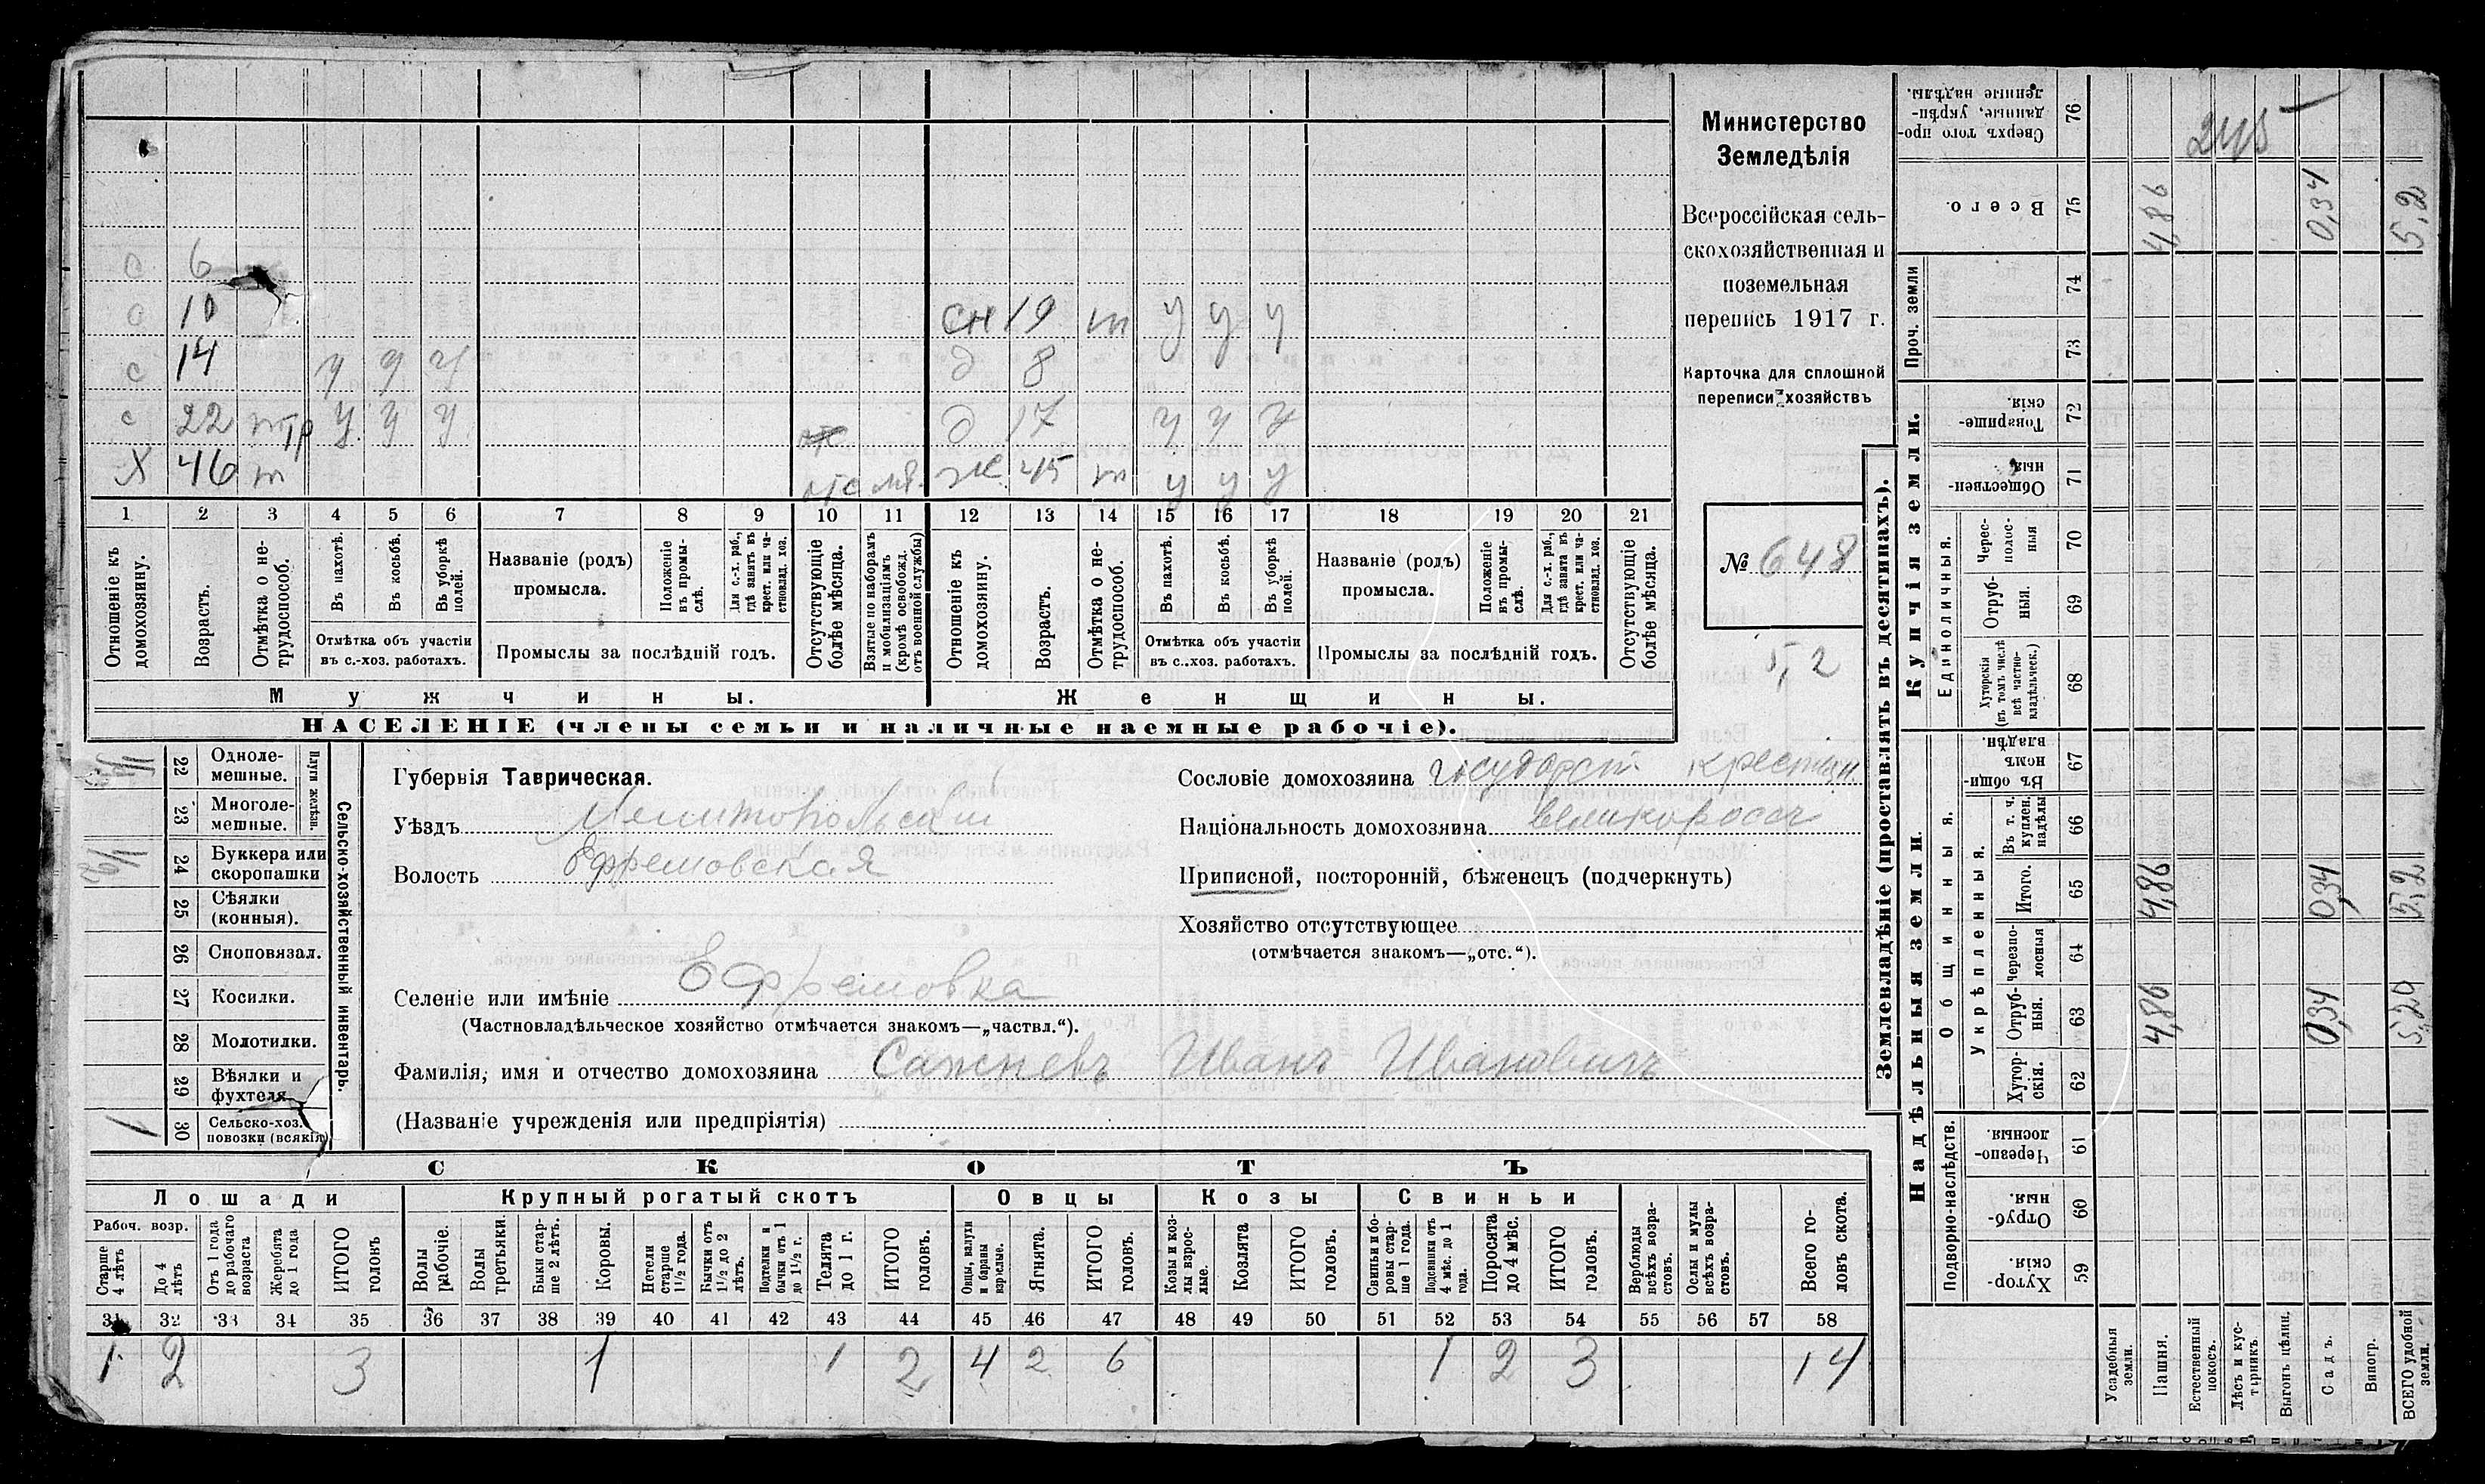 Министерство
Земледѣлія
Всероссійская сель-
скохозяйственная и
поземельная
перепись 1917 г.
Карточка для сплошной
переписи хозяйствъ
№ 648
5,2
с 6
с 10
с 14 у у у
с 22 у у у
Х 46 т
сн 19 т у у у
д 8
д 17 у у у
ж 45 т у у у
1 2 3 4 5 6 7 8 9 10 11 12 13 14 15 16 17 18 19 20 21
Отношеніе къ домохозяину.
Возрастъ.
Отмѣтка о не-трудоспособ.
Въ пахотѣ.
Въ косьбѣ.
Въ уборкѣ полей.
Отмѣтка объ участіи
въ с.-хоз. работахъ.
Названіе (родъ)
промысла.
Положеніе въ промы-слѣ.
Для с.-х. раб., гдѣ занятъ въ крест. или ча-стновлад. хоз.
Промыслы за послѣдній годъ.
Отсутствующіе болѣе мѣсяца.
Взятые по наборамъ и мобилизаціямъ (кромѣ освобожд. отъ военной службы)
Отношеніе къ домохозяину.
Возрастъ.
Отмѣтка о не-трудоспособ.
Въ пахотѣ.
Въ косьбѣ.
Въ уборкѣ полей.
Отмѣтка объ участіи
въ с.-хоз. работахъ.
Названіе (родъ)
промысла.
Положеніе въ промы-слѣ.
Для с.-х. раб., гдѣ занята въ крест. или ча-стновлад. хоз.
Промыслы за послѣдній годъ.
Отсутствующіе болѣе мѣсяца.
Мужчины.
Женщины.
НАСЕЛЕНІЕ (члены семьи и наличные наемные рабочіе).
Сельско-хозяйственный инвентарь.
Плуги желѣзн.
22 Одноле-мешные.
23 Многоле-мешные.
24 Буккера или скоропашки
25 Сѣялки (конныя).
26 Сноповязал.
27 Косилки.
28 Молотилки.
29 Вѣялки и фухтеля
30 Сельско-хоз. повозки (всякія)
1
Губернія Таврическая.
Уѣздъ Мелитопольскій
Волость Ефремовская
Сословіе домохозяина государст. крестьян.
Національность домохозяина великороссъ
Приписной, посторонній, бѣженецъ (подчеркнуть)
Хозяйство отсутствующее
(отмѣчается знакомъ—„отс.“).
Селеніе или имѣніе Ефремовка
(Частновладѣльческое хозяйство отмѣчается знакомъ—„частвл.“).
Фамилія, имя и отчество домохозяина Сажневъ Иванъ Ивановичъ
(Названіе учрежденія или предпріятія)
СКОТЪ
Лошади
Крупный рогатый скотъ
Овцы
Козы
Свиньи
Рабоч. возр.
Старше 4 лѣтъ
До 4 лѣтъ
Отъ 1 года до рабочаго возраста
Жеребята до 1 года
ИТОГО головъ
Волы рабочіе.
Волы третьяки.
Быки стар-ше 2 лѣтъ.
Коровы.
Нетели старше 1½ года.
Бычки отъ 1½ до 2 лѣтъ.
Подтелки и бычки отъ 1 до 1½ г.
Телята до 1 г.
ИТОГО головъ.
Овцы, валухи и бараны взрослые.
Ягнята.
ИТОГО головъ.
Козы и коз-лы взрос-лые.
Козлята
ИТОГО головъ.
Свиньи и бо-ровы стар-ше 1 года.
Подсвинки отъ 4 мѣс. до 1 года.
Поросята до 4 мѣс.
ИТОГО головъ.
Верблюды всѣхъ возра-стовъ.
Ослы и мулы всѣхъ возра-стовъ.
Всего го-ловъ скота.
31 32 33 34 35 36 37 38 39 40 41 42 43 44 45 46 47 48 49 50 51 52 53 54 55 56 57 58
1 2 3 1 1 2 4 2 6 1 2 3 14
Землевладѣніе (проставлять въ десятинахъ).
Надѣльныя земли.
Купчія земли.
Проч. земли
Подворно-наслѣдств.
Общинныя.
Укрѣпленныя.
Единоличныя.
Сверхъ того про-данные, укрѣп-ленные надѣлы. 76
Всего. 75
74
73
Товарище-скія. 72
Обществен-ныя 71
Черес-полос-ныя 70
Отруб-ныя. 69
Хуторскія (въ томъ числѣ всѣ частно-владѣльческ.) 68
Въ общи-номъ владѣн. 67
Въ т. ч. куплен. надѣлы 66
Итого. 65
Черезпо-лосныя 64
Отруб-ныя. 63
Хутор-скія. 62
Черезпо-лосныя. 61
Отруб-ныя. 60
Хутор-скія. 59
Усадебныя земли.
Пашня.
Естественный покосъ.
Лѣсъ и кус-тарникъ.
Выгонъ цѣлин.
Садъ.
Виногр.
ВСЕГО удобной земли.
245
4,86 0,34 5,2
4,86 0,34 5,2
4,86 0,34 5,20